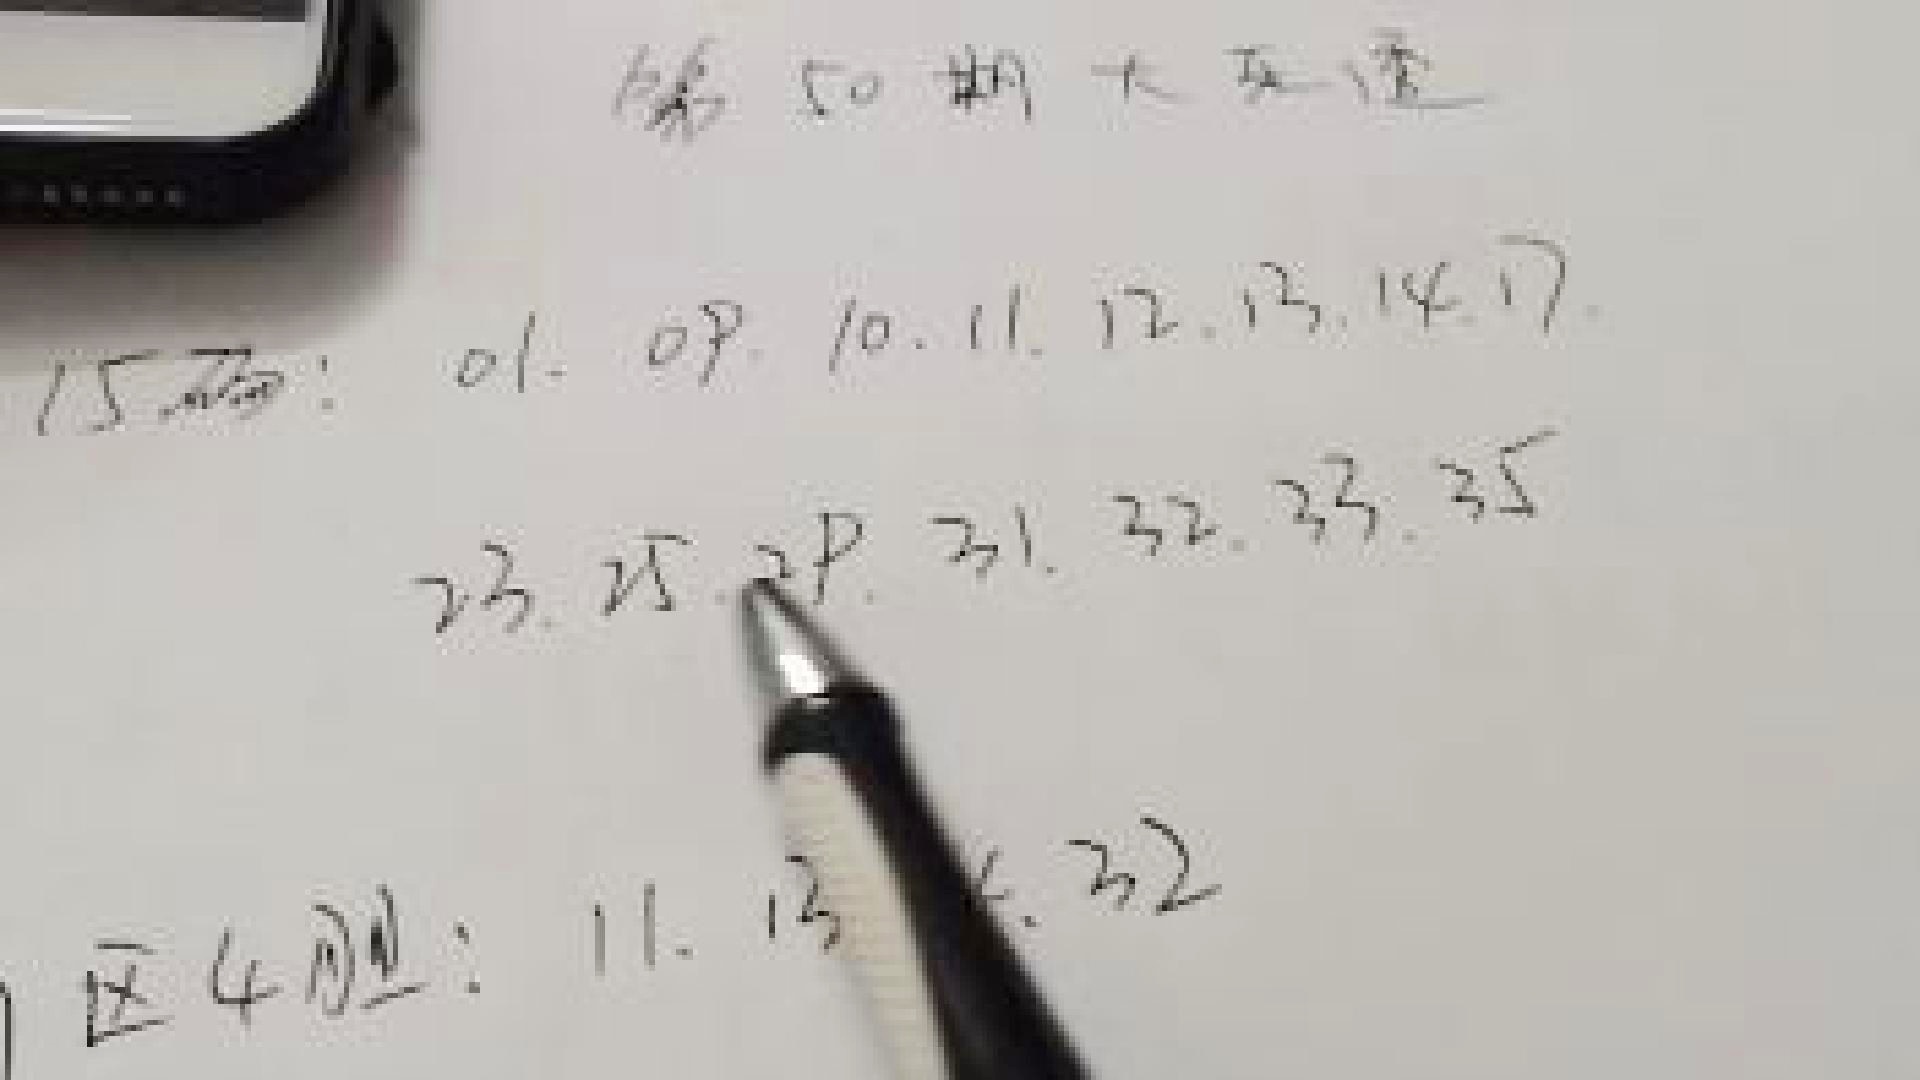 第50期大乐透
15码: 01. 09. 10. 11. 12. 13. 14. 17.
23. 25. 29. 31. 32. 33. 35
区4胆: 11. 13 . 32